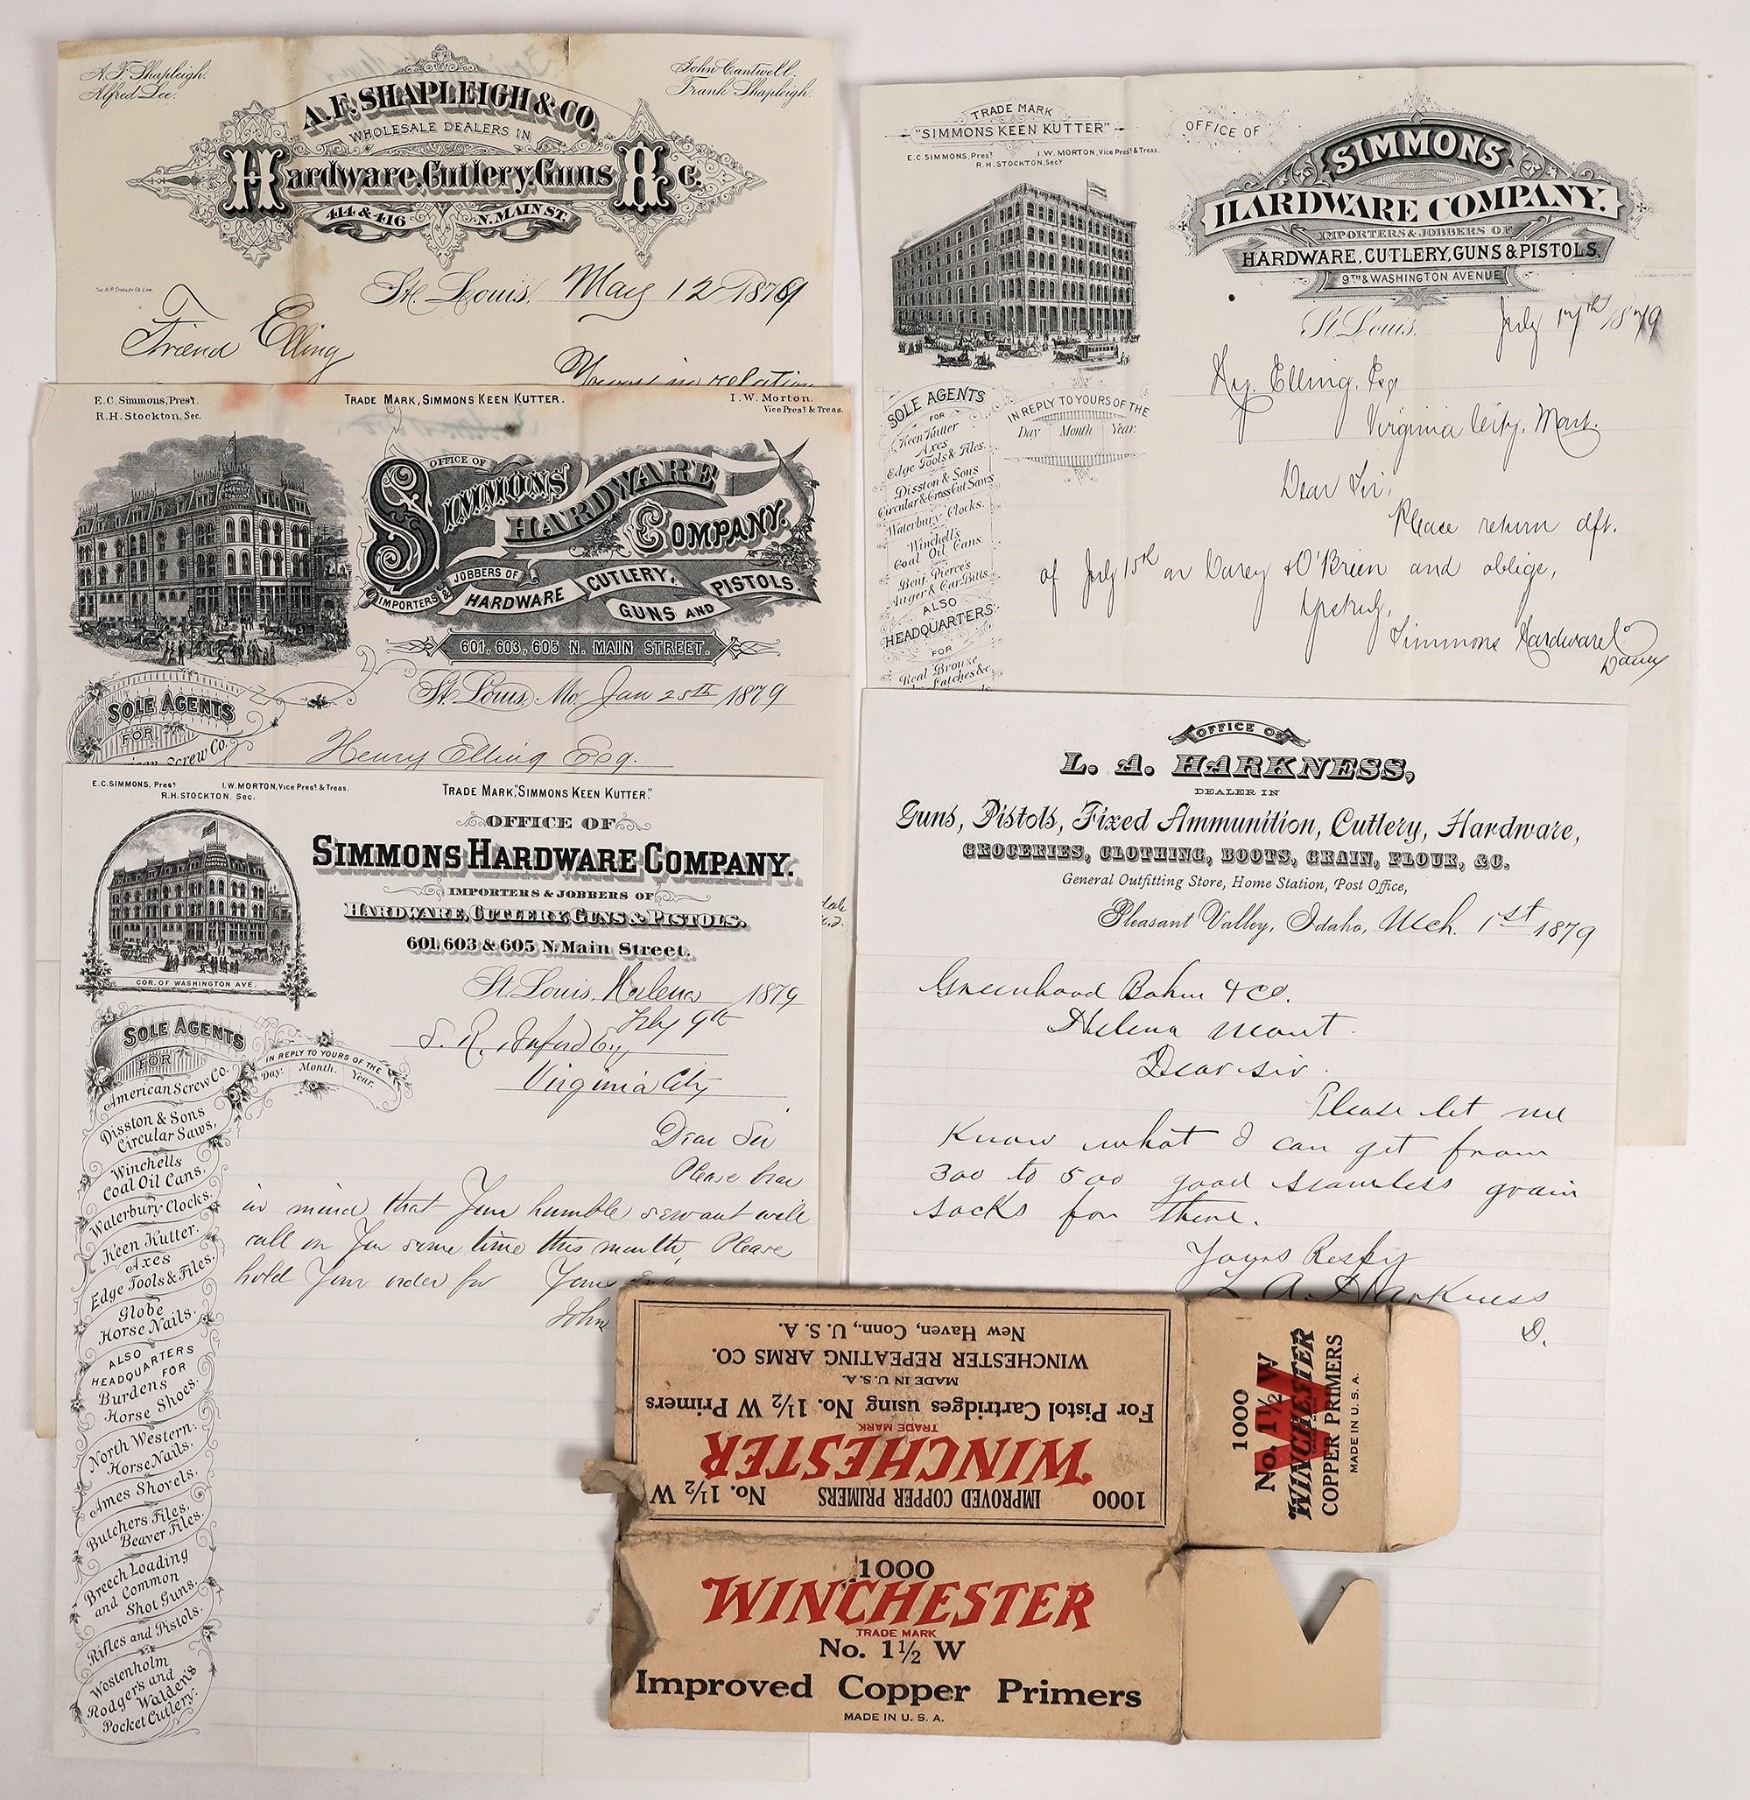 A. F. Shapleigh.
Alfred Lee.
John Cantwell.
Frank Shapleigh.
A. F. SHAPLEIGH & CO.
WHOLESALE DEALERS IN
Hardware, Cutlery, Guns & c.
414 & 416 N. MAIN ST.
St. Louis, May 12 1879
Friend Elling
Yours in relation
E. C. Simmons, Prest.
R. H. Stockton, Sec.
TRADE MARK, SIMMONS KEEN KUTTER.
I. W. Morton.
Vice Prest & Treas.
OFFICE OF
SIMMONS HARDWARE COMPANY.
IMPORTERS & JOBBERS OF
HARDWARE CUTLERY, GUNS AND PISTOLS.
601, 603, 605 N. MAIN STREET.
St. Louis, Mo. Jan 25th 1879
SOLE AGENTS
FOR
Screw Co.
Henry Elling Esq.
E. C. SIMMONS, Prest
I. W. MORTON, Vice Prest & Treas.
R. H. STOCKTON, Sec.
TRADE MARK, "SIMMONS KEEN KUTTER."
OFFICE OF
SIMMONS HARDWARE COMPANY.
IMPORTERS & JOBBERS OF
HARDWARE, CUTLERY, GUNS & PISTOLS.
601, 603 & 605 N. Main Street.
COR. OF WASHINGTON AVE.
St. Louis, Helena 1879
Feby 9th
Virginia City
Dear Sir
Please bear
in mind that Your humble servant will
call on You some time this month, Please
hold Your order for Yours
John
SOLE AGENTS
FOR
IN REPLY TO YOURS OF THE
Day. Month. Year.
American Screw Co.
Disston & Sons
Circular Saws.
Winchells
Coal Oil Cans.
Waterbury Clocks.
Keen Kutter
Axes
Edge Tools & Files.
Globe
Horse Nails.
ALSO
HEADQUARTERS
FOR
Burdens
Horse Shoes.
North Western
Horse Nails.
Ames Shovels.
Butchers Files.
Beaver Files.
Breech Loading
and Common
Shot Guns.
Rifles and Pistols.
Wostenholm
Rodger's and
Walden's
Pocket Cutlery.
TRADE MARK
"SIMMONS KEEN KUTTER"
E. C. SIMMONS, Prest
I. W. MORTON, Vice Prest & Treas.
R. H. STOCKTON, Secy
OFFICE OF
SIMMONS
HARDWARE COMPANY.
IMPORTERS & JOBBERS OF
HARDWARE, CUTLERY, GUNS & PISTOLS.
9TH & WASHINGTON AVENUE
St. Louis, July 17th 1879
Hy. Elling, Esq
Virginia City, Mont.
Dear Sir,
Please return dft.
of July 15th on Carey & O'Brien and oblige,
Yrs truly,
Simmons Hardware Co
SOLE AGENTS
FOR
Keen Kutter
Axes
Edge Tools & Files.
Disston & Sons
Circular & Cross Cut Saws
Waterbury Clocks.
Winchell's
Coal Oil Cans.
Benj. Pierce's
Auger & Car Bitts
ALSO
HEADQUARTERS
FOR
Real Bronze
Latches &c.
IN REPLY TO YOURS OF THE
Day Month Year.
OFFICE OF
L. A. HARKNESS,
DEALER IN
Guns, Pistols, Fixed Ammunition, Cutlery, Hardware,
GROCERIES, CLOTHING, BOOTS, GRAIN, FLOUR, &C.
General Outfitting Store, Home Station, Post Office,
Pleasant Valley, Idaho, Mch. 1st 1879
Greenhood Bohm & Co.
Helena Mont.
Dear Sir.
Please let me
Know what I can get from
300 to 500 good seamless grain
sacks for there.
Yours Respy
L. A. Harkness
D.
1000 IMPROVED COPPER PRIMERS No. 1½ W
WINCHESTER
TRADE MARK
For Pistol Cartridges using No. 1½ W Primers
MADE IN U.S.A.
WINCHESTER REPEATING ARMS CO.
New Haven, Conn., U. S. A.
1000
No. 1½ W
WINCHESTER
COPPER PRIMERS
MADE IN U. S. A.
1000
WINCHESTER
TRADE MARK
No. 1½ W
Improved Copper Primers
MADE IN U. S. A.